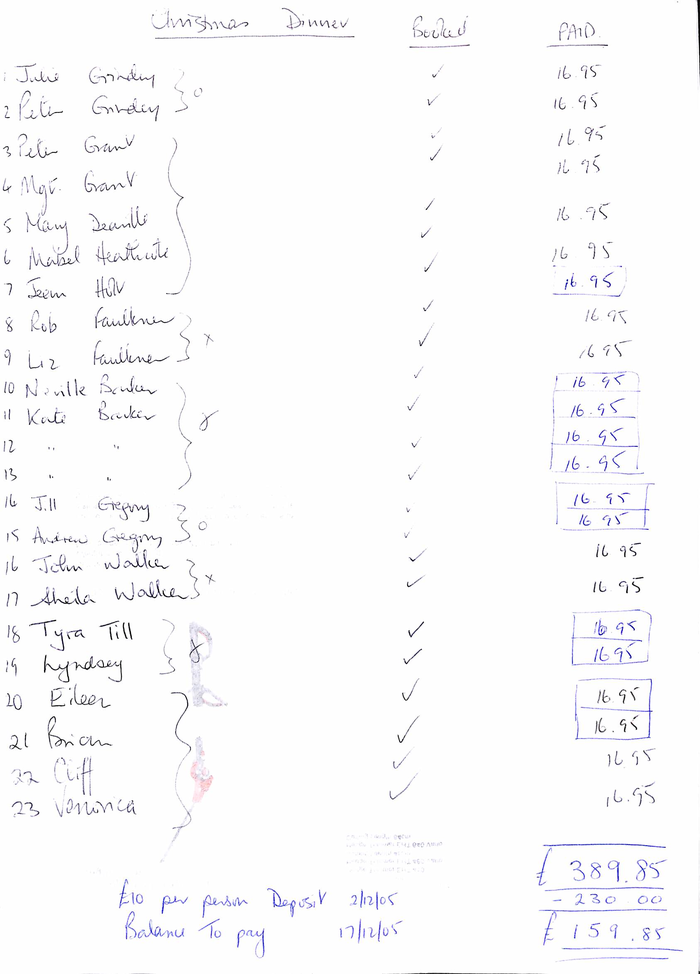 Christmas Dinner Booked PAID
1 Julie Grindey ✓ 16.95
2 Peter Grindey ✓ 16.95
3 Peter Grant ✓ 16.95
4 Mgt. Grant ✓ 16.95
5 Mary ✓ 16.95
6 Mabel Heathcote ✓ 16.95
7 ✓ 16.95
8 Rob Faulkner ✓ 16.95
9 Liz Faulkner ✓ 16.95
10 Neville Barker ✓ 16.95
11 Kate Barker ✓ 16.95
12 " " ✓ 16.95
13 " " ✓ 16.95
14 Jill Gregory ✓ 16.95
15 Andrew Gregory ✓ 16.95
16 John Walker ✓ 16.95
17 Sheila Walker ✓ 16.95
18 Tyra Till ✓ 16.95
19 Lyndsey ✓ 16.95
20 Eileen ✓ 16.95
21 Brian ✓ 16.95
22 Cliff ✓ 16.95
23 Veronica ✓ 16.95
£ 389.85
£10 per person Deposit 2/12/05 - 230 00
Balance To pay 17/12/05 £ 159.85